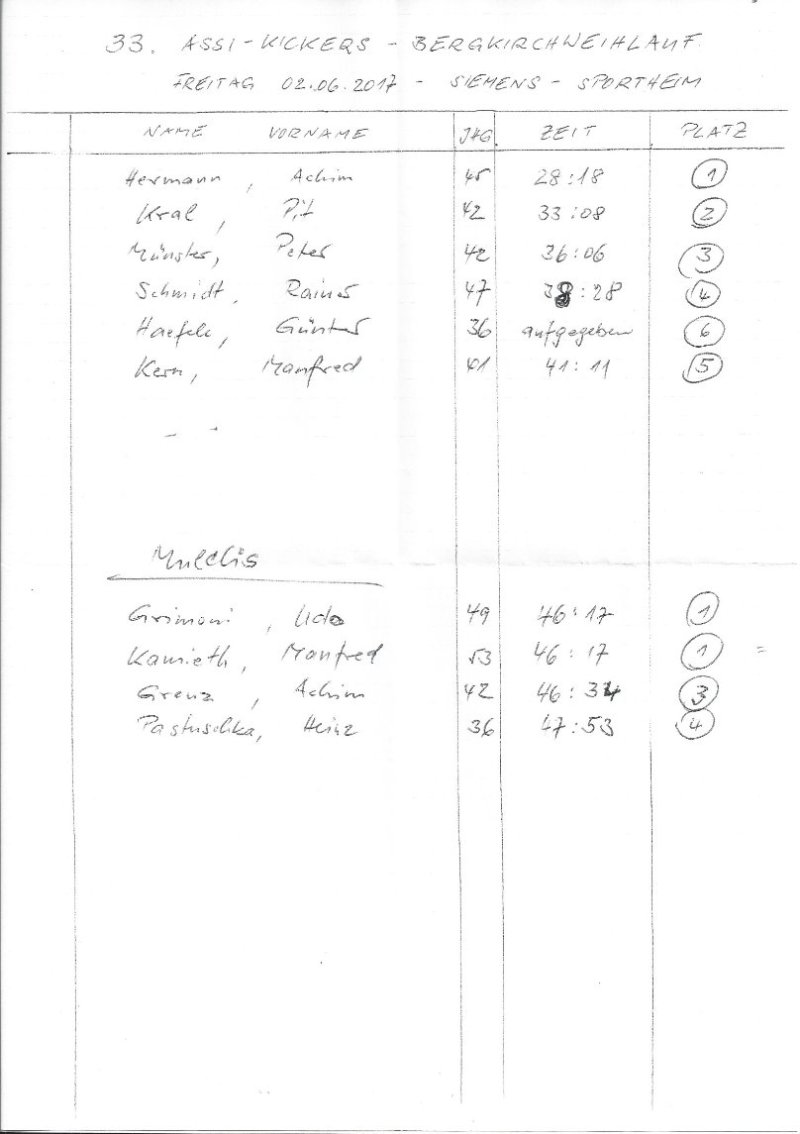 33. ASSI-KICKERS - BERGKIRCHWEIHLAUF
FREITAG 02.06.2017 - SIEMENS - SPORTHEIM
NAME VORNAME JHG ZEIT PLATZ
Hermann, Achim 45 28:18 1
Kral, Pit 42 33:08 2
Münster, Peter 42 36:06 3
Schmidt, Rainer 47 38:28 4
Haefele, Günter 36 aufgegeben 6
Kern, Manfred 41:11 5
- -
Mulchis
Grimoni, Udo 49 46:17 1
Kamieth, Manfred 53 46:17 1 =
Grenz, Achim 42 46:34 3
Pastuschka, Heinz 36 47:53 4